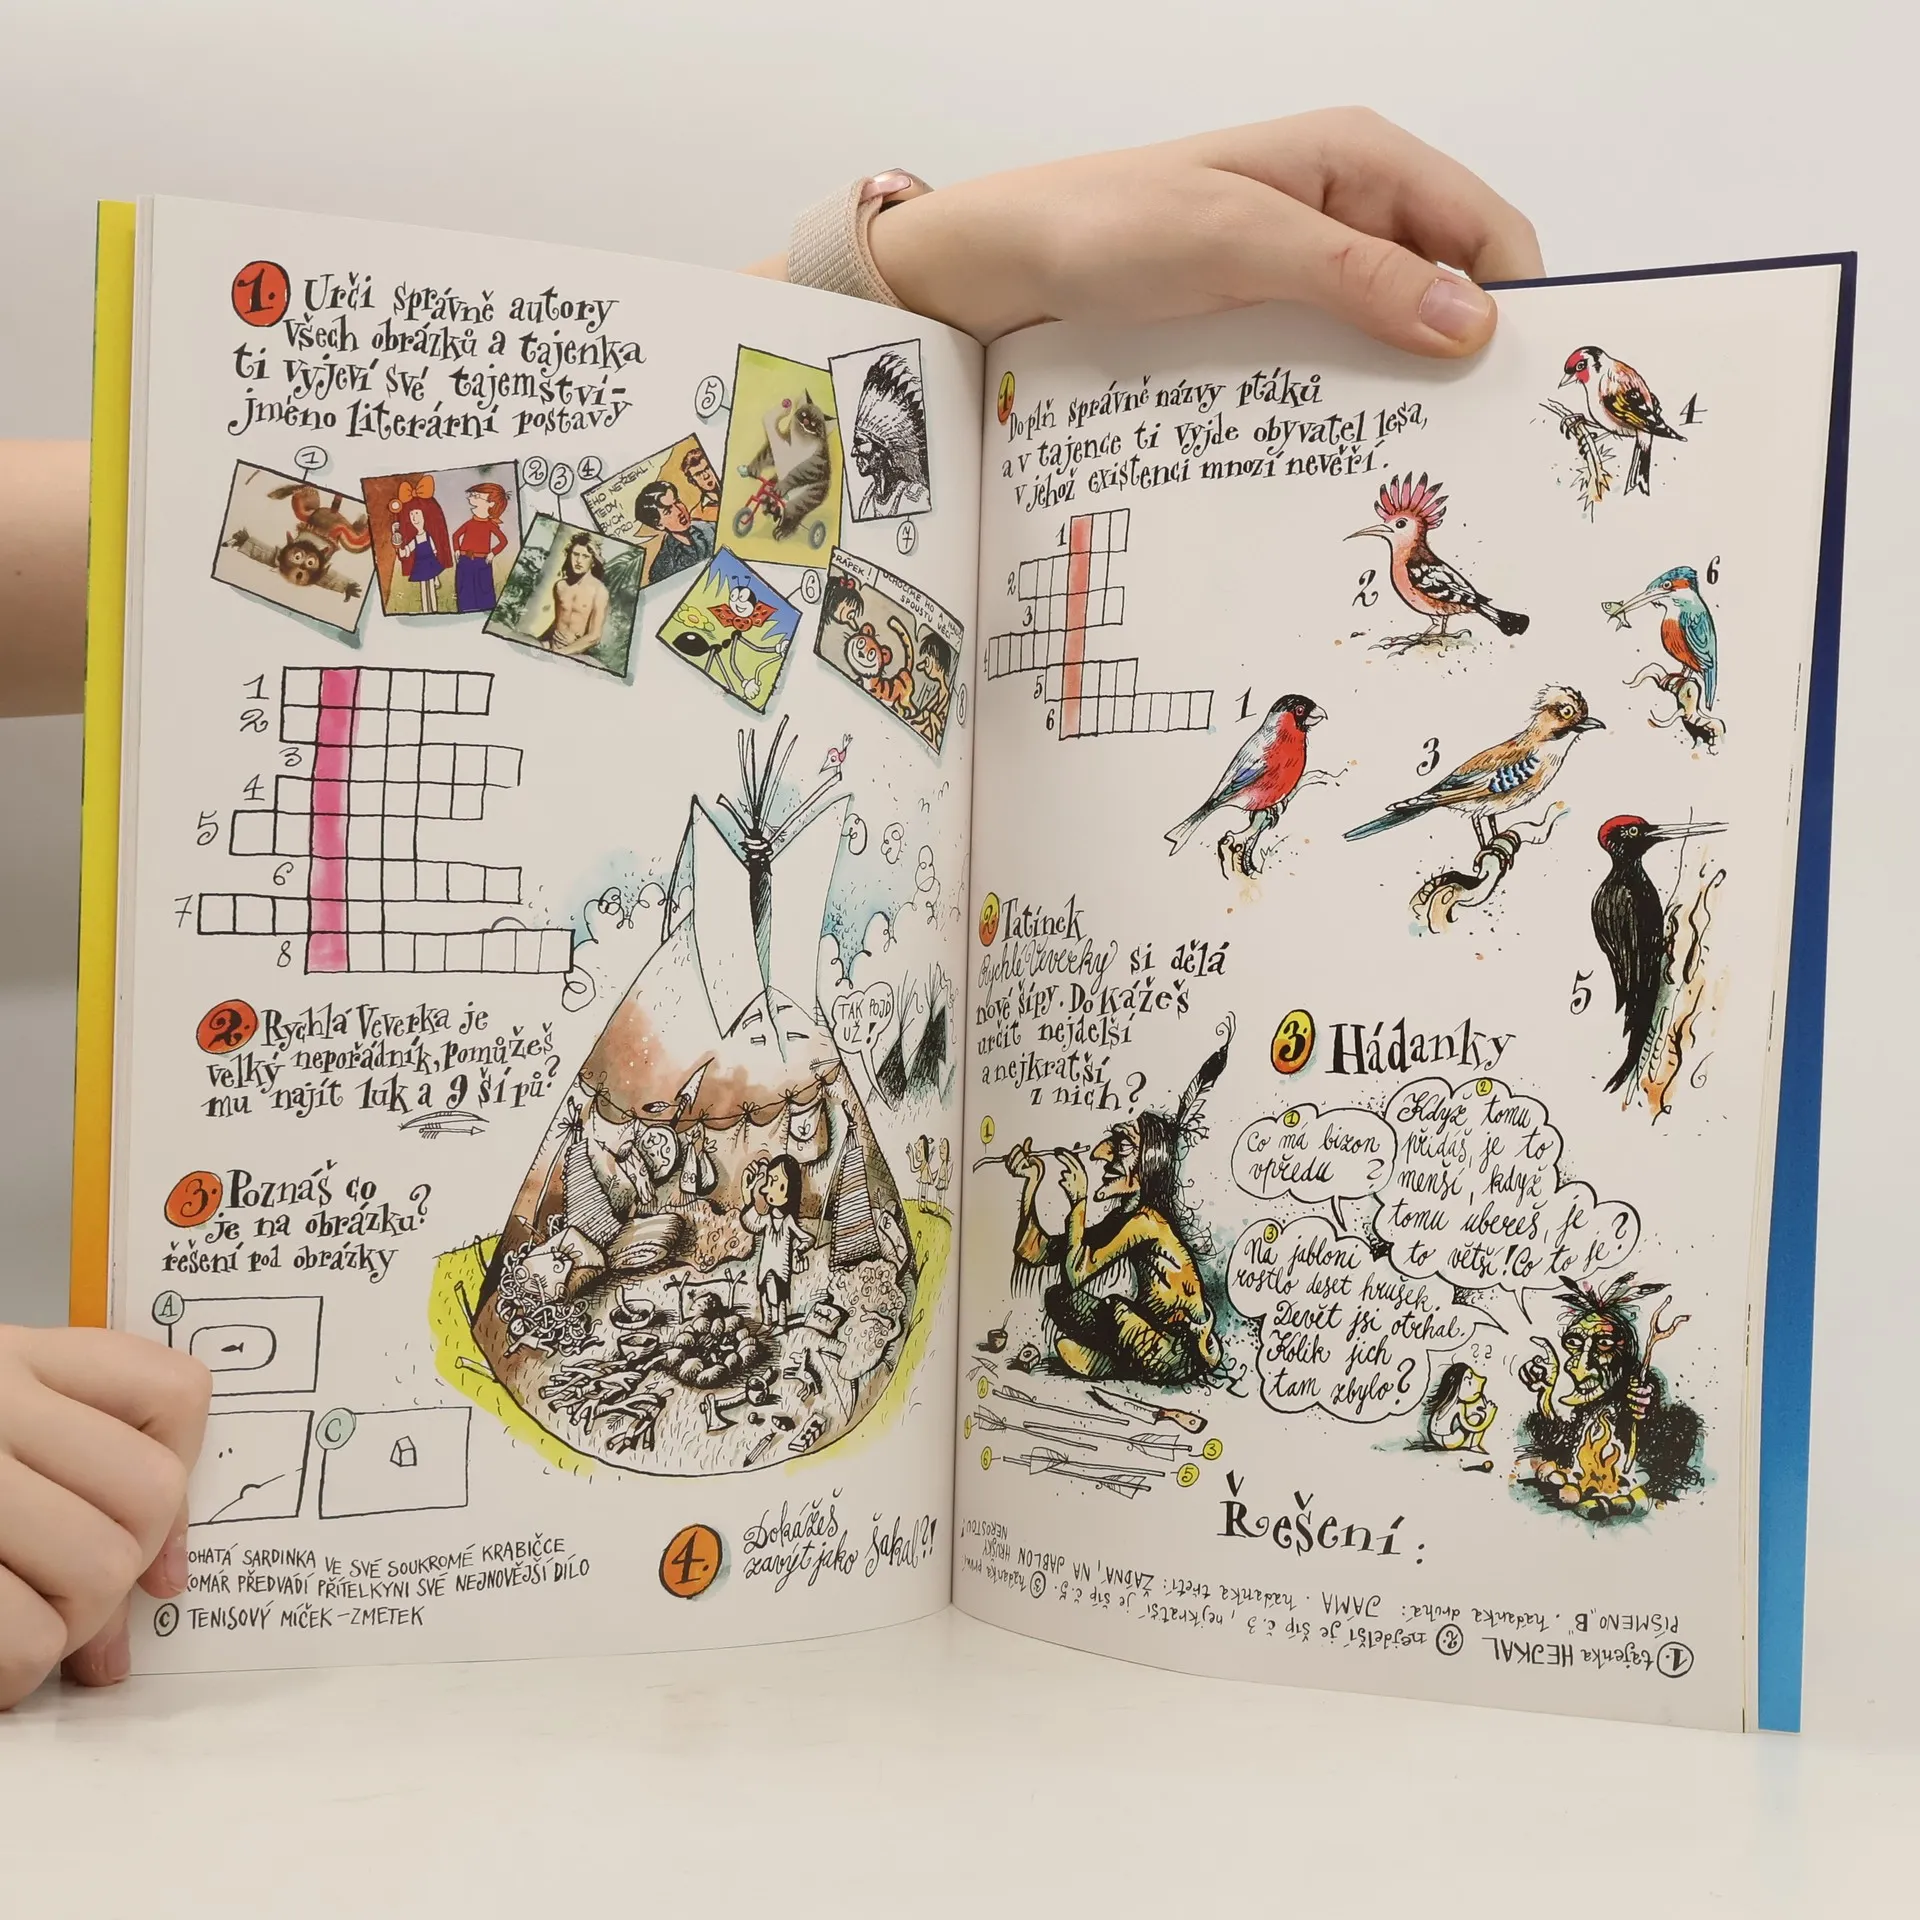 1. Urči správně autory
všech obrázků a tajenka
ti vyjeví své tajemství-
jméno literární postavy
1
2
3
4
5
6
7
8
TEDY,
BYCH
RÁPEK!
UCHOČÍME HO A
SPOUSTU VĚCÍ
1
2
3
4
5
6
7
8
2. Rychlá Veverka je
velký nepořádník, pomůžeš
mu najít luk a 9 šípů?
TAK POJĎ
UŽ!
3. Poznáš co
je na obrázku?
řešení pod obrázky
A
C
OHATÁ SARDINKA VE SVÉ SOUKROMÉ KRABIČCE
OMÁR PŘEDVÁDÍ PŘÍTELKYNI SVÉ NEJNOVĚJŠÍ DÍLO
C TENISOVÝ MÍČEK-ZMETEK
4. Dokážeš
zavýt jako šakal?!
1 Doplň správně názvy ptáků
a v tajence ti vyjde obyvatel lesa,
v jehož existenci mnozí nevěří.
1
2
3
4
5
6
4
2
6
1
3
5
2 Tatínek
Rychlé Veverky si dělá
nové šípy. Dokážeš
určit nejdelší
a nejkratší
z nich?
1
2
4
6
3
5
3. Hádanky
1
Co má bizon
vpředu ?
2
Když tomu
přidáš, je to
menší, když
tomu ubereš, je
to větší! Co to je?
3
Na jabloni
rostlo deset hrušek.
Devět jsi otrhal.
Kolik jich
tam zbylo?
??
Řešení:
1. tajenka HEJKAL 2. nejdelší je šíp č. 3, nejkratší je šíp č. 5. 3 hádanka první:
PÍSMENO „B". hádanka druhá: JÁMA. hádanka třetí: ŽÁDNÁ, NA JABLONI HRUŠKY
NEROSTOU!